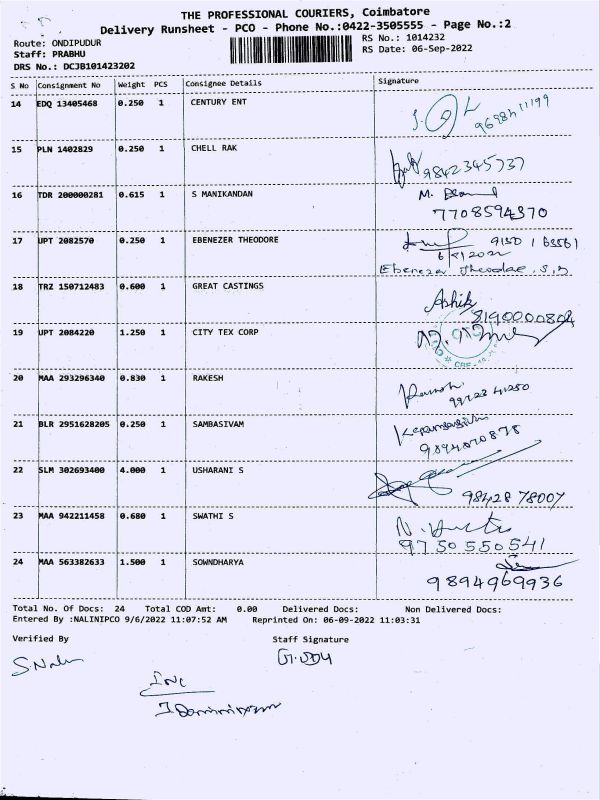 THE PROFESSIONAL COURIERS, Coimbatore
Delivery Runsheet - PCO - Phone No.:0422-3505555 - Page No.:2
Route: ONDIPUDUR
RS No.: 1014232
Staff: PRABHU
RS Date: 06-Sep-2022
DRS No.: DCJB101423202
S No Consignment No Weight PCS Consignee Details Signature
14 EDQ 13405468 0.250 1 CENTURY ENT
15 PLN 1402829 0.250 1 CHELL RAK
9842345737
16 TDR 200000281 0.615 1 S MANIKANDAN
7708594370
17 UPT 2082570 0.250 1 EBENEZER THEODORE
Ebenezer Theodae. S.D
18 TRZ 150712483 0.600 1 GREAT CASTINGS
Ashik
8190000804
19 UPT 2084220 1.250 1 CITY TEX CORP
20 MAA 293296340 0.830 1 RAKESH
21 BLR 2951628205 0.250 1 SAMBASIVAM
9894070878
22 SLM 302693400 4.000 1 USHARANI S
9842878007
23 MAA 942211458 0.680 1 SWATHI S
9750550541
24 MAA 563382633 1.500 1 SOWNDHARYA
9894969936
Total No. Of Docs: 24 Total COD Amt: 0.00 Delivered Docs: Non Delivered Docs:
Entered By :NALINIPCO 9/6/2022 11:07:52 AM Reprinted On: 06-09-2022 11:03:31
Verified By Staff Signature